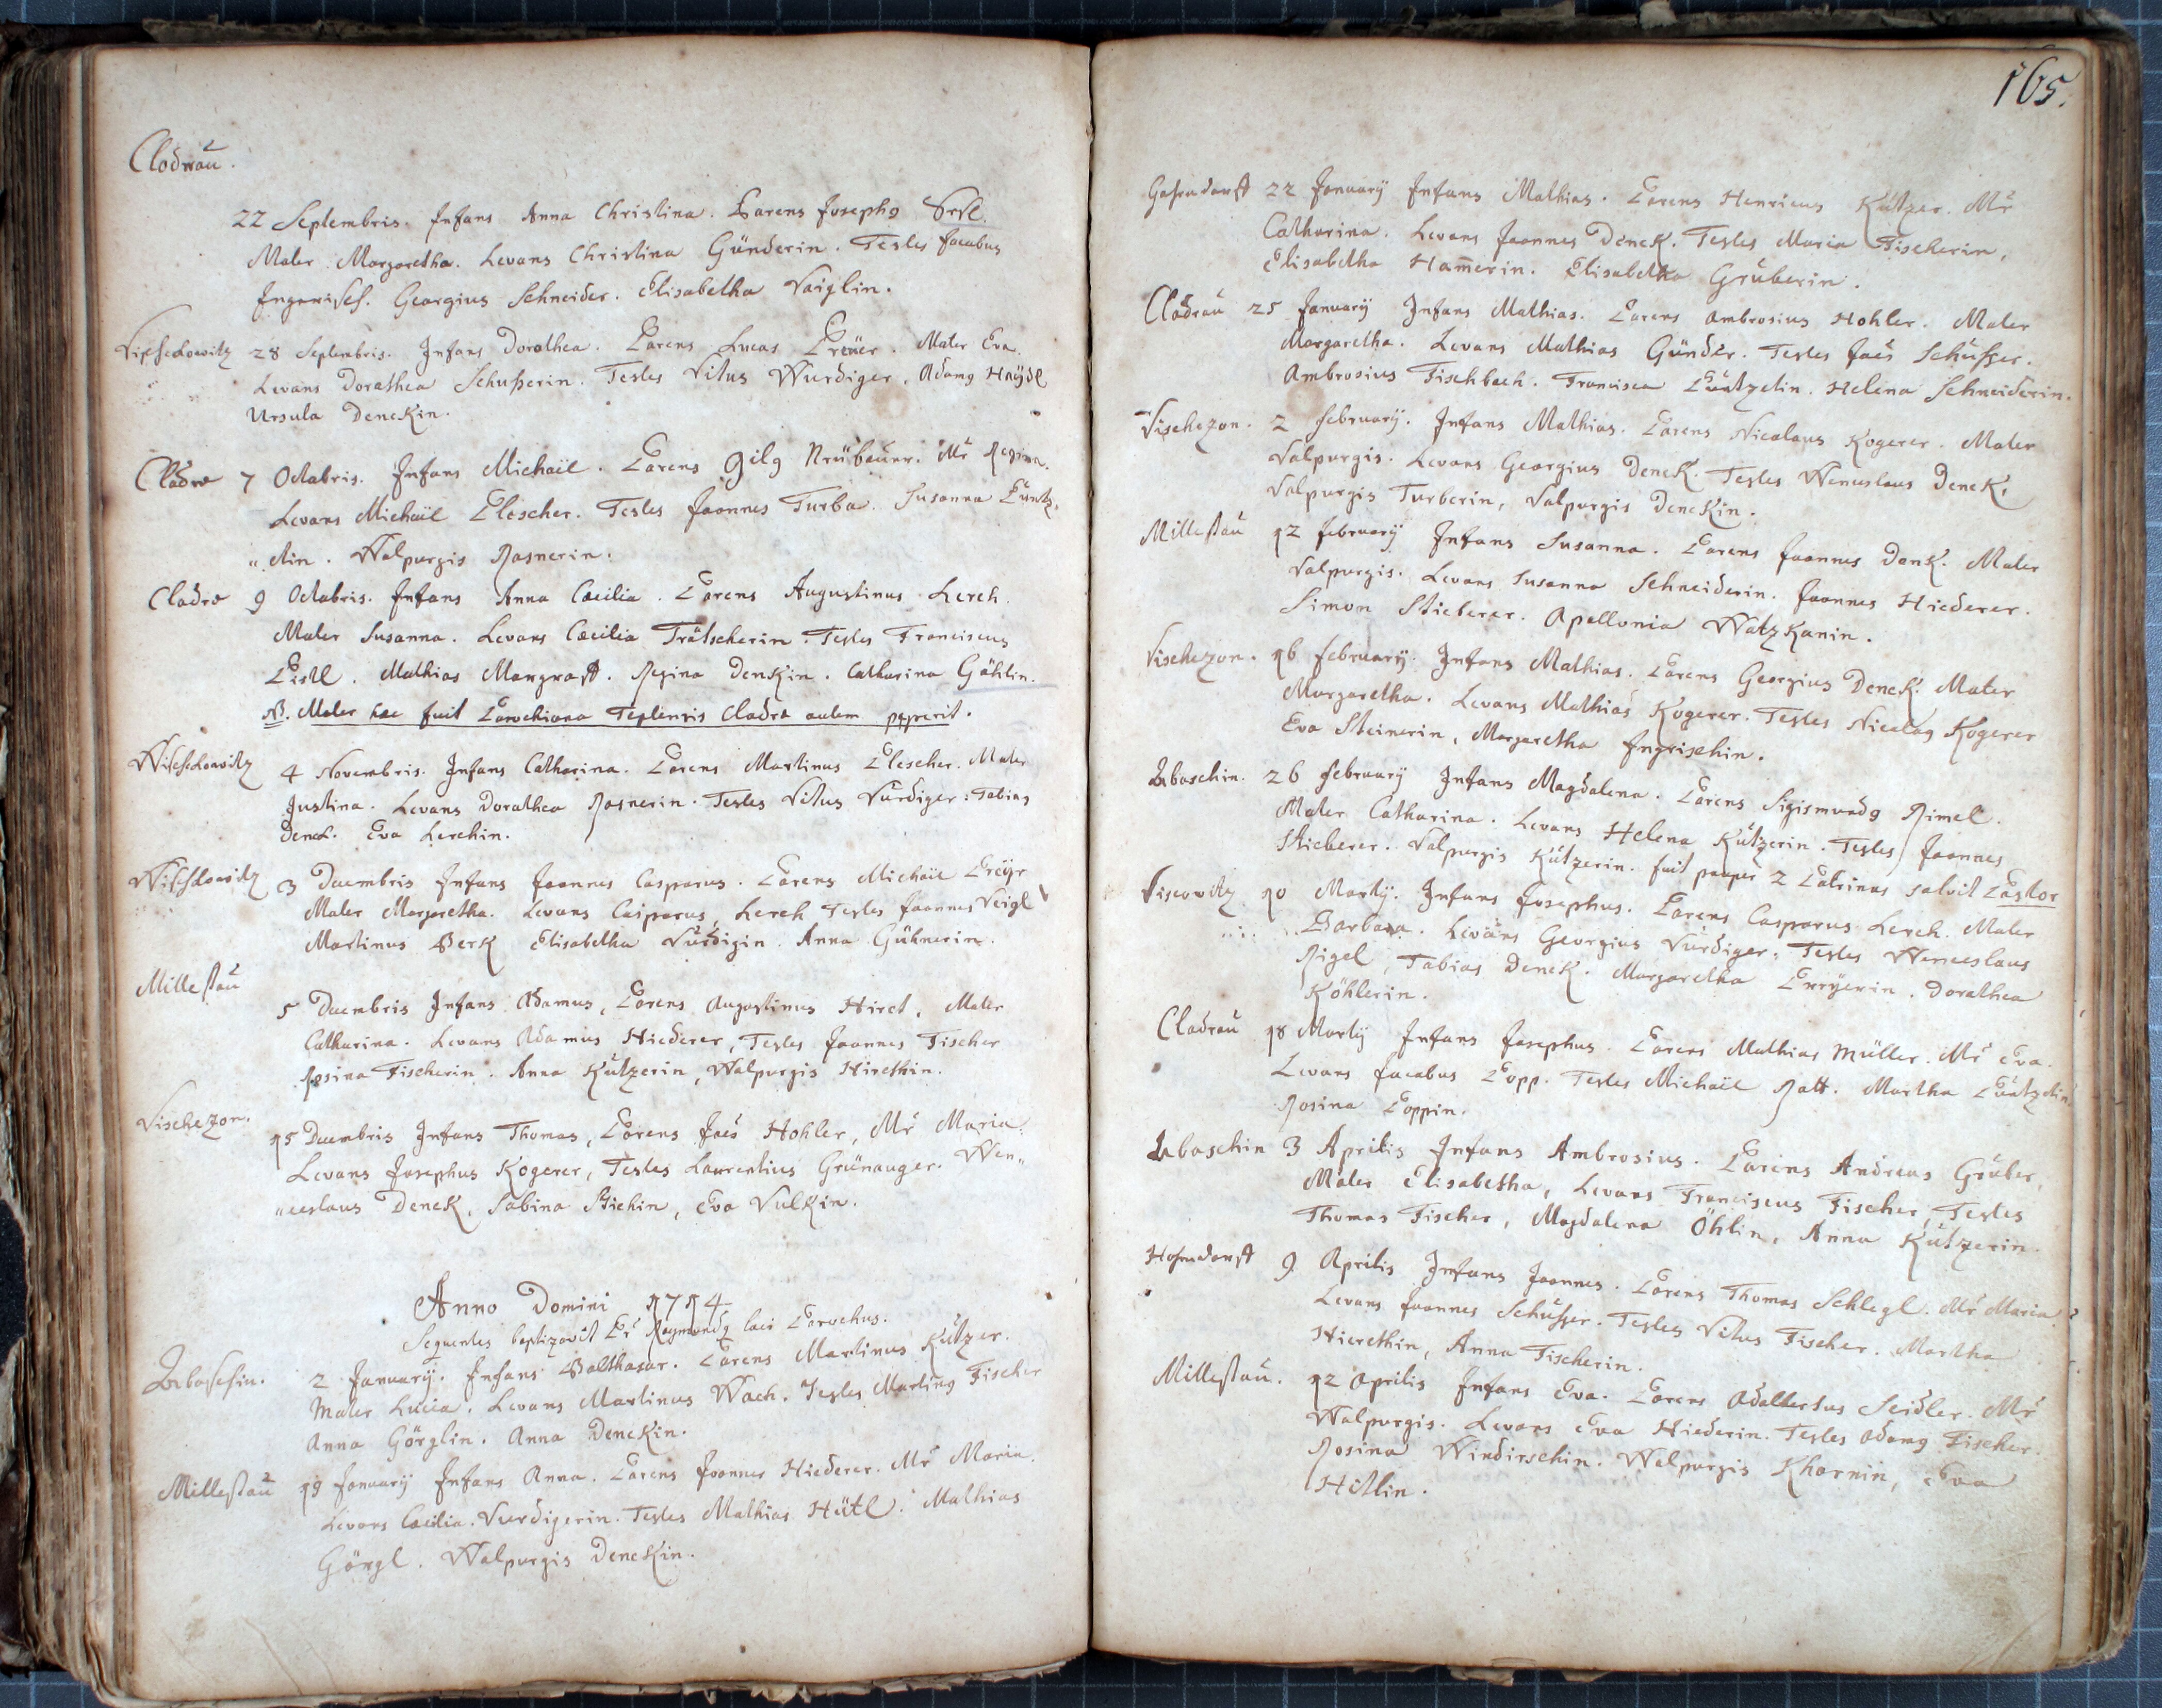 Cladrau.
22 Septembris. Infans Anna Christina. Parens Josephg
Mater Margaretha. Levans Christina Günderin. Testes Jacobus
Ingerisch. Georgius Schneider. Elisabetha Vaiglin.
28 Septembris. Infans Dorothea. Parens Lucas Preüer. Mater Eva.
Levans Dorathea Schusserin. Testes Vitus Wurdiger, Adamg Haÿdl
Ursula Denckin.
Cladra 7 Octobris. Infans Michaël. Parens Gilg Neübauer. Mr Regina.
Levans Michaël Plescher. Testes Joannes Turba. Susanna Puntz„
„elin. Walpurgis Rasnerin.
Cladra 9 Octobris. Infans Anna Caecilia. Parens Augustinus Lerch.
Mater Susanna. Levans Caecilia Trätscherin. Testes Franciscus
Pistl. Mathias Margraft. Regina Denkin. Catharina Göhlin.
NB. Mater haec fuit Parochiana Teplensis Cladra autem peperit.
Wischkowitz 4 Novembris. Infans Catharina. Parens Martinus Plescher. Mater
Justina. Levans Dorathea Rasnerin. Testes Vitus Vurdiger: Tobias
Denck. Eva Lerchin.
Wischkowitz 3 Decembris Infans Joannes Casparus. Parens Michaël Preÿr
Mater Margaretha. Levans Casparus Lerch Testes Joannes Veigl
Martinus Berk Elisabetha Vurdigin. Anna Gühnerin.
Millestau
5 Decembris Infans Adamus, Parens Augustinus Hiret, Mater
Catharina. Levans Adamus Hiederer, Testes Joannes Fischer
Rosina Fischerin. Anna Kutzerin, Walpurgis Hirethin.
Vischezon. 15 Decembris Infans Thomas, Parens Joes Hohler, Mr Maria.
Levans Josephus Kogerer, Testes Laurentius Grünauger. Wen„
„ceslaus Denck, Sabina Stichin, Eva Vulkin.
Anno Domini 1714
Sequentes baptizavit Pr Raymundg loci Parochus.
Abaschin. 2 January. Infans Balthasar. Parens Martinus Kutzer.
Mater Lucia. Levans Martinus Wach. Testes Marting Fischer
Anna Görglin. Anna Denckin.
Millestau 19 January Infans Anna. Parens Joannes Hiederer. Mr Maria.
Levans Caecilia Vurdigerin. Testes Mathias Hütl. Mathias
Görgl. Walpurgis Denckin.
165.
22 January Infans Mathias. Parens Henricus Kutzer. Mr
Catharina. Levans Joannes Denck. Testes Maria Fischerin,
Elisabetha Ham̄erin. Elisabetha Gruberin.
Cladrau 25 January Infans Mathias. Parens Ambrosius Hohler. Mater
Margaretha. Levans Mathias Günder. Testes Joes Schusser.
Ambrosius Fischbach. Francisca Puntzelin. Helena Schneiderin.
Vischezon. 2 February. Infans Mathias. Parens Nicolaus Kogerer. Mater
Valpurgis. Levans Georgius Denck. Testes Wenceslaus Denck,
Valpurgis Turberin, Valpurgis Denckin.
Millestau 12 February Infans Susanna. Parens Joannes Denk. Mater
Valpurgis. Levans Susanna Schneiderin. Joannes Hiederer.
Simon Stieberer. Apollonia Watzkanin.
Vischezon. 16 February. Infans Mathias. Parens Georgius Denck. Mater
Margaretha. Levans Mathias Kogerer. Testes Nicolag Kogerer
Eva Steinerin, Margaretha Ingrischin.
Abaschin. 26 February Infans Magdalena. Parens Sigismundg Rimel.
Mater Catharina. Levans Helena Kutzerin. Testes Joannes
Stieberer. Valpurgis Kutzerin. fuit pauper 2 Patrinus solvit Pastor
Viscovitz 10 Marty. Infans Josephus. Parens Casparus Lerch. Mater
Barbara. Levans Georgius Vurdiger, Testes Wenceslaus
Rigel, Tobias Denck. Margaretha Preÿerin. Dorathea
Köhlerin.
Cladrau 18 Marty Infans Josephus. Parens Mathias Müller. Mr Eva.
Levans Jacobus Popp. Testes Michaël Ratt. Martha Puntzelin.
Rosina Poppin.
Abaschin 3 Aprilis Infans Ambrosius. Parens Andreas Gruber,
Mater Elisabetha, Levans Franciscus Fischer, Testes
Thomas Fischer, Magdalena Öhlin, Anna Kutzerin.
9 Aprilis Infans Joannes. Parens Thomas Schlegl. Mr Maria.
Levans Joannes Schusser. Testes Vitus Fischer. Martha
Hierethin, Anna Fischerin.
Millestau. 12 Aprilis Infans Eva. Parens Adalbertus Seidler. Mr
Walpurgis. Levans Eva Hiederin. Testes Adamg Fischer.
Rosina Windirschin. Walpurgis Khornin, Eva
Hitlin.